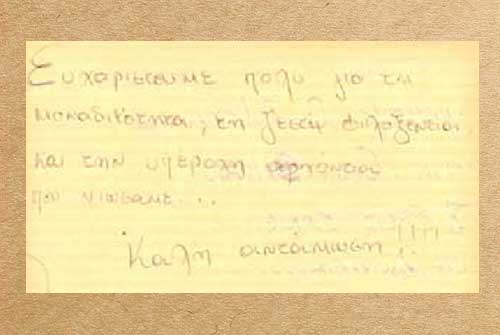 Ευχαριστούμε πολύ για τη
μοναδικότητα, τη ζεστή φιλοξενία
και την υπέροχη
που νιώσαμε...
Καλή αντάμωση!!!